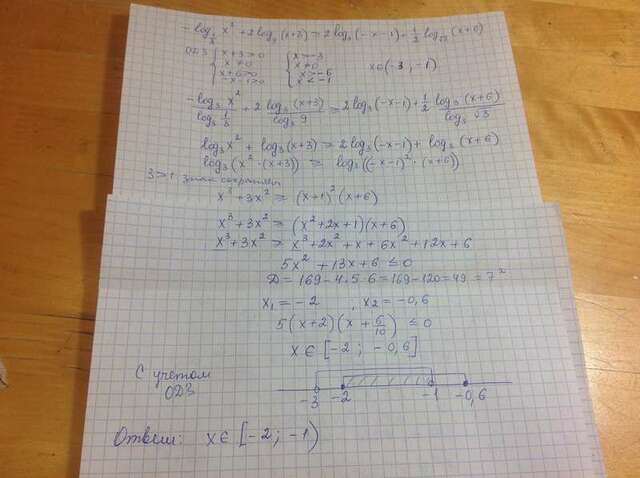 -log_{1/3} x² + 2log_9 (x+3) ≥ 2log_3 (-x-1) + 1/2 log_{√3} (x+6)
ОДЗ { x+3>0 { x>-3
x≠0 x≠0 x∈(-3; -1)
x+6>0 x>-6
-x-1>0 x<-1
-log_3 x² / log_3 1/3 + 2 log_3 (x+3) / log_3 9 ≥ 2log_3 (-x-1) + 1/2 log_3 (x+6) / log_3 √3
log_3 x² + log_3 (x+3) ≥ 2log_3 (-x-1) + log_3 (x+6)
log_3 (x²·(x+3)) ≥ log_3 ((-x-1)²·(x+6))
3>1 знак сохраняем
x³+3x² ≥ (x+1)²(x+6)
x³+3x² ≥ (x²+2x+1)(x+6)
x³+3x² ≥ x³+2x²+x+6x²+12x+6
5x²+13x+6 ≤0
D=169-4·5·6=169-120=49=7²
x₁=-2 , x₂=-0,6
5(x+2)(x+6/10) ≤0
x∈[-2; -0,6]
С учетом
ОДЗ
-3 -2 -1 -0,6
Ответ: x∈[-2; -1)